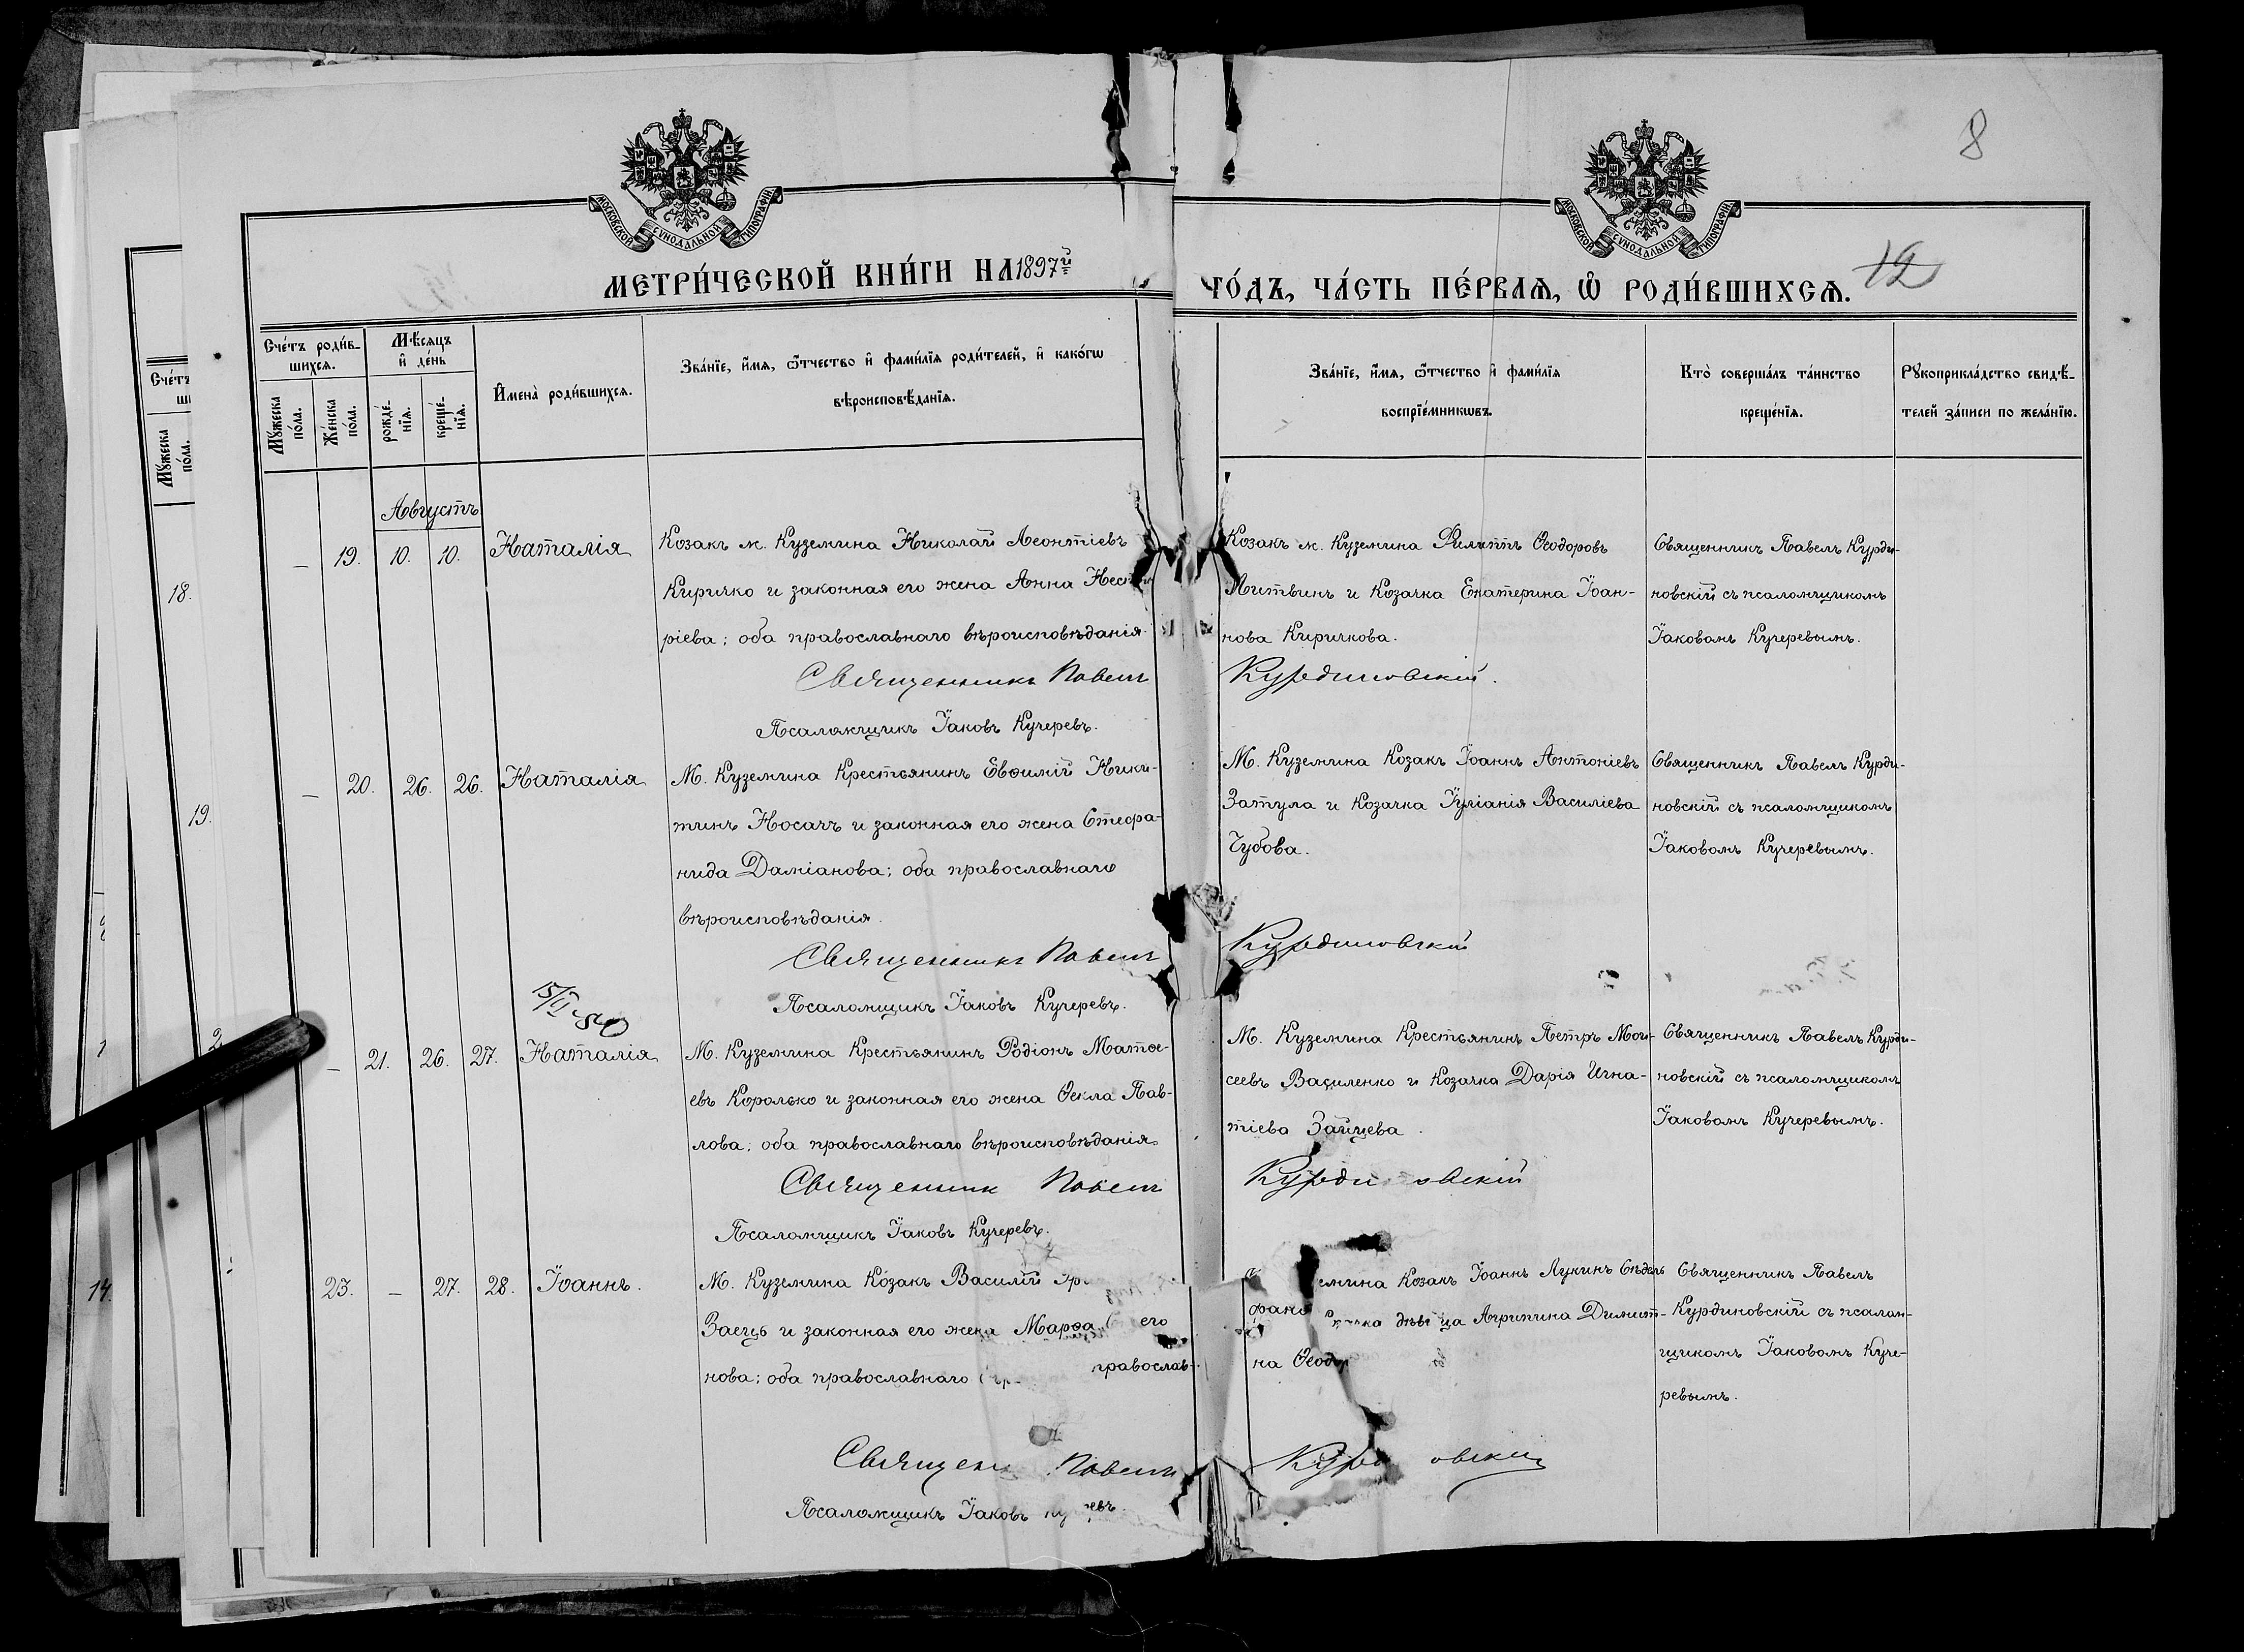 8
МОСКОВСКОЙ СУНОДАЛЬНОЙ ТИПОГРАФІИ
МОСКОВСКОЙ СУНОДАЛЬНОЙ ТИПОГРАФІИ
МЕТРИ́ЧЕСКОЙ КНИ́ГИ НА 1897й
ГО́ДЪ, ЧА́СТЬ ПЕ́РВАѦ, Ѡ҆ РОДИ́ВШИХСѦ.
12
Сче́тъ роди́в-
шихсѧ.
Мѣ́сѧцъ
и҆ де́нь
Мꙋ́жеска
по́ла.
Же́нска
по́ла.
рожде́-
нїѧ.
креще́-
нїѧ.
И҆мена̀ роди́вшихсѧ.
Зва́нїе, и҆́мѧ, ѻ҆́тчество и҆ фами́лїѧ роди́телей, и҆ како́гѡ
вѣроисповѣ́данїѧ.
Зва́нїе, и҆́мѧ, ѻ҆́тчество и҆ фами́лїѧ
воспрїе́мникѡвъ.
Кто̀ соверша́лъ та́инство
креще́нїѧ.
Рꙋкоприкла́дство свидѣ́-
телей за́писи по жела́нїю.
Сче́тъ
Мꙋ́жеска
по́ла.
18.
19.
14.
Августъ
– 19. 10. 10. Наталія
Козакъ м. Куземина Николай Леонтіевъ
Киричко и законная его жена Анна
ріева; оба православнаго вѣроисповѣданія.
Священникъ Павелъ Курдиновскій.
Псаломщикъ Іаковъ Кучеревъ.
Козакъ м. Куземина Филиппъ Ѳеодоровъ
Литвинъ и Козачка Екатерина Іоан-
нова Киричкова.
Священникъ Павелъ Курди-
новскій съ псаломщикомъ
Іаковомъ Кучеревымъ.
– 20. 26. 26. Наталія
М. Куземина Крестьянинъ Евѳимій Ники-
тинъ Носачъ и законная его жена Стефа-
нида Даміанова; оба православнаго
вѣроисповѣданія.
Священникъ Павелъ Курдиновскій
Псаломщикъ Іаковъ Кучеревъ.
М. Куземина Козакъ Іоаннъ Антоніевъ
Затула и Козачка Іуліанія Василіева
Чубова.
Священникъ Павелъ Курди-
новскій съ псаломщикомъ
Іаковомъ Кучеревымъ.
– 21. 26. 27. Наталія
М. Куземина Крестьянинъ Родіонъ Матѳе-
евъ Королько и законная его жена Ѳекла Пав-
лова; оба православнаго вѣроисповѣданія.
Священник Павелъ
Псаломщикъ Іаковъ Кучеревъ.
М. Куземина Крестьянинъ Петръ Мои-
сеевъ Василенко и Козачка Дарія Игна-
тіева Зайцева.
Священникъ Павелъ Курди-
новскій съ псаломщикомъ
Іаковомъ Кучеревымъ.
23. – 27. 28. Іоаннъ.
М. Куземина Козакъ Василій
Заецъ и законная его жена Марѳа
нова; оба православнаго
Павелъ
Псаломщикъ Іаковъ
Козакъ Іоаннъ Лукинъ
Агрипина Димит-
на
Священникъ Павелъ
Курдиновскій съ псалом-
щикомъ Іаковомъ Куче-
ревымъ.